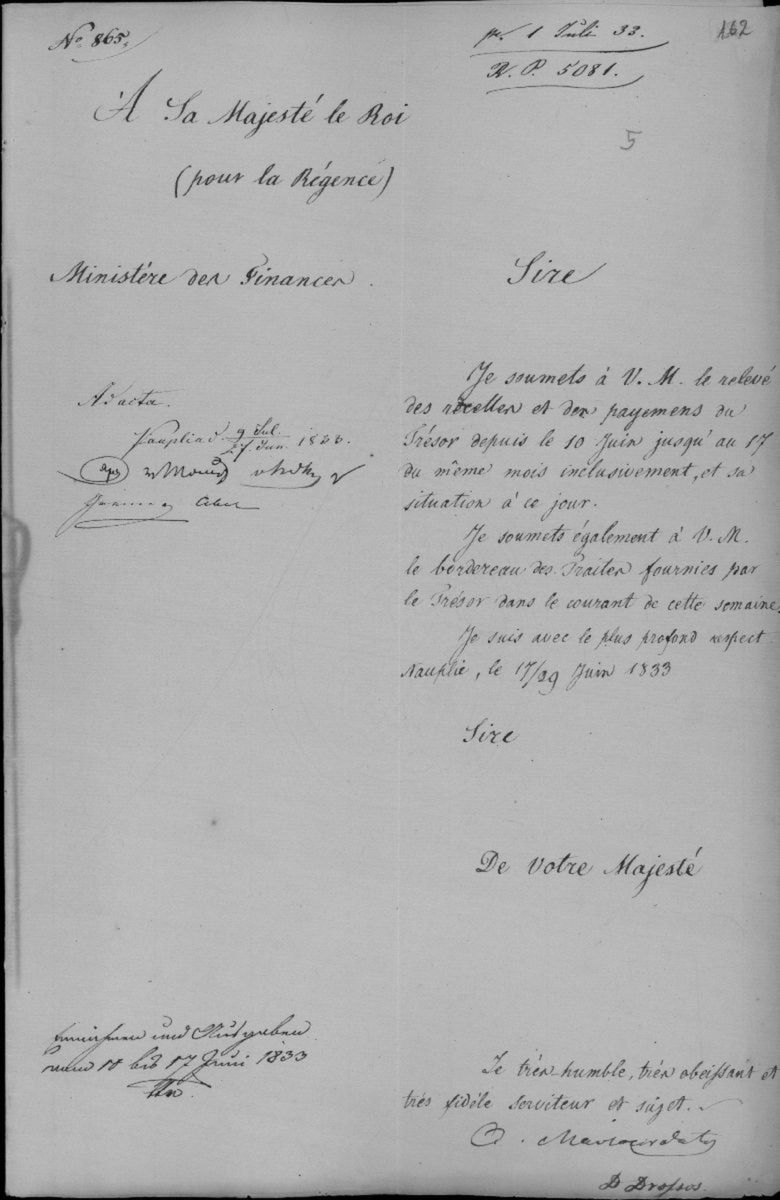 No 865.
pr. 1 Juli 33.
162
R. P. 5081.
À Sa Majesté le Roi
5
(pour la Régence)
Ministère des Finances.
Sire
Ad acta.
Naupliad 9 Jul. / 27 Jun. 1833.
Je soumets à V. M. le relevé
des recettes et des payemens du
Trésor depuis le 10 Juin jusqu'au 17
du même mois inclusivement, et sa
situation à ce jour.
Je soumets également à V. M.
le bordereau des Traites fournies par
le Trésor dans le courant de cette semaine.
Je suis avec le plus profond respect
Nauplie, le 17/29 Juin 1833
Sire
De Votre Majesté
Einnahmen und Ausgaben
vom 10 bis 17 Juni 1833
Le très humble, très obeissant et
très fidèle serviteur et sujet.
A. Maurocordato
D Drossos